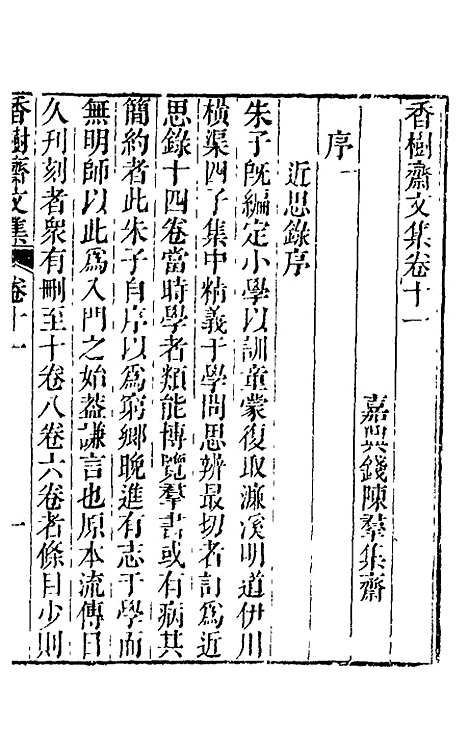 香樹齋文集卷十一
嘉興錢陳羣集齋
序一
近思錄序
朱子旣編定小學以訓童蒙復取濂溪明道伊川
橫渠四子集中精義于學問思辨最切者訂爲近
思錄十四卷當時學者類能博覽羣書或有病其
簡約者此朱子自序以爲窮鄉晚進有志于學而
無明師以此爲入門之始葢謙言也原本流傳日
久刊刻者衆有刪至十卷八卷六卷者條目少則
香樹齋文集 卷十一 一